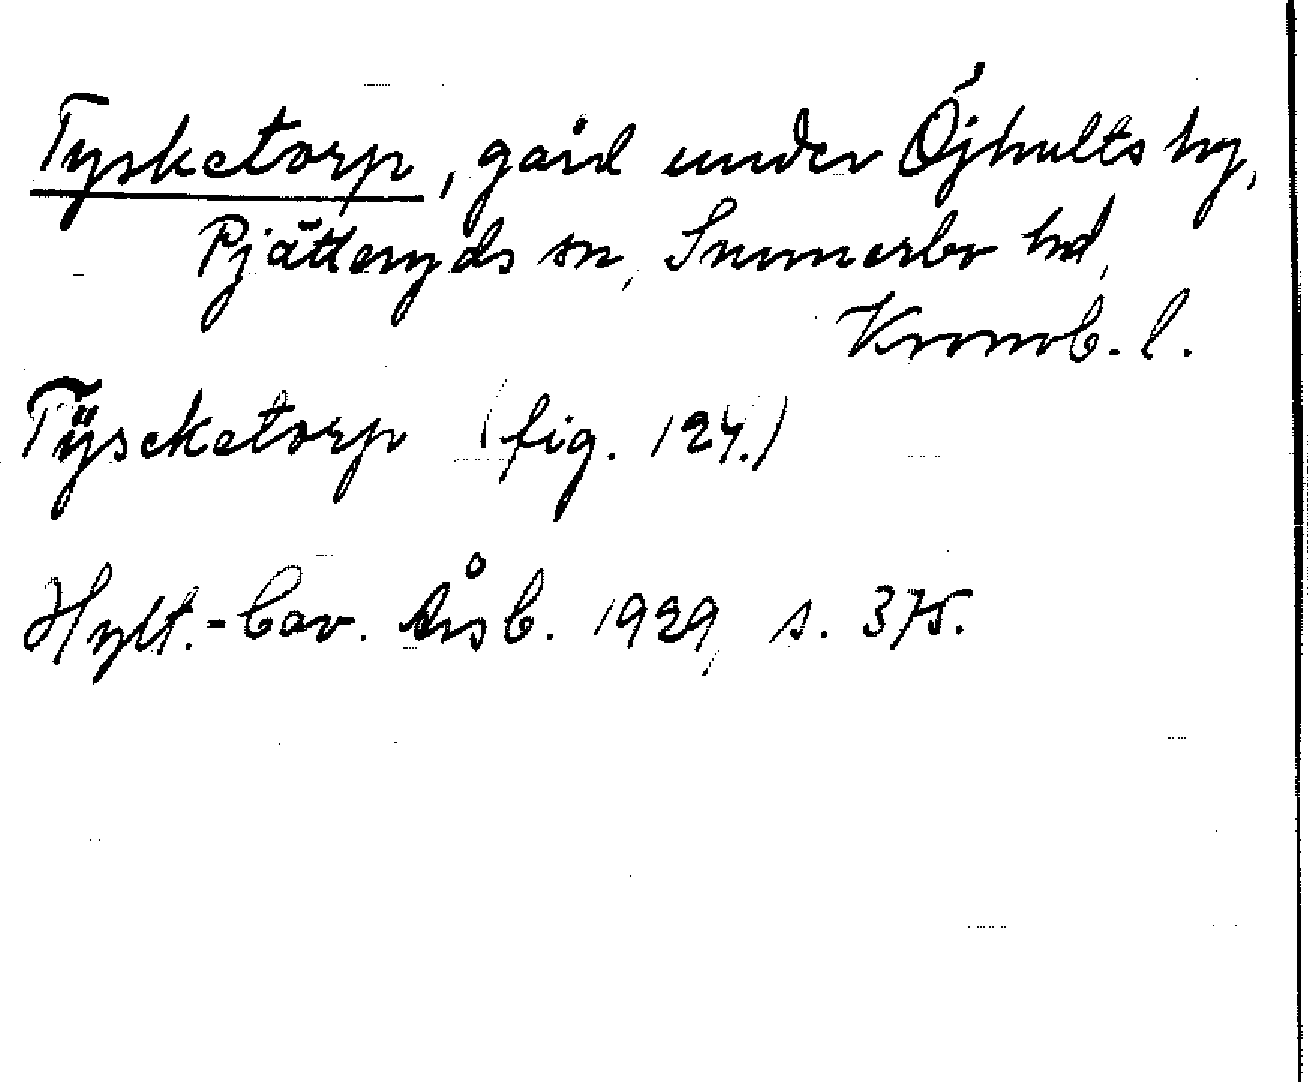 Tysketorp, gård under Öjhults by,
Pjätteryds sn, Sunnerbo hd,
Kronob. l.
Tÿscketorp (fig. 124.)
Hylt.-Cav. Årsb. 1929, s. 375.